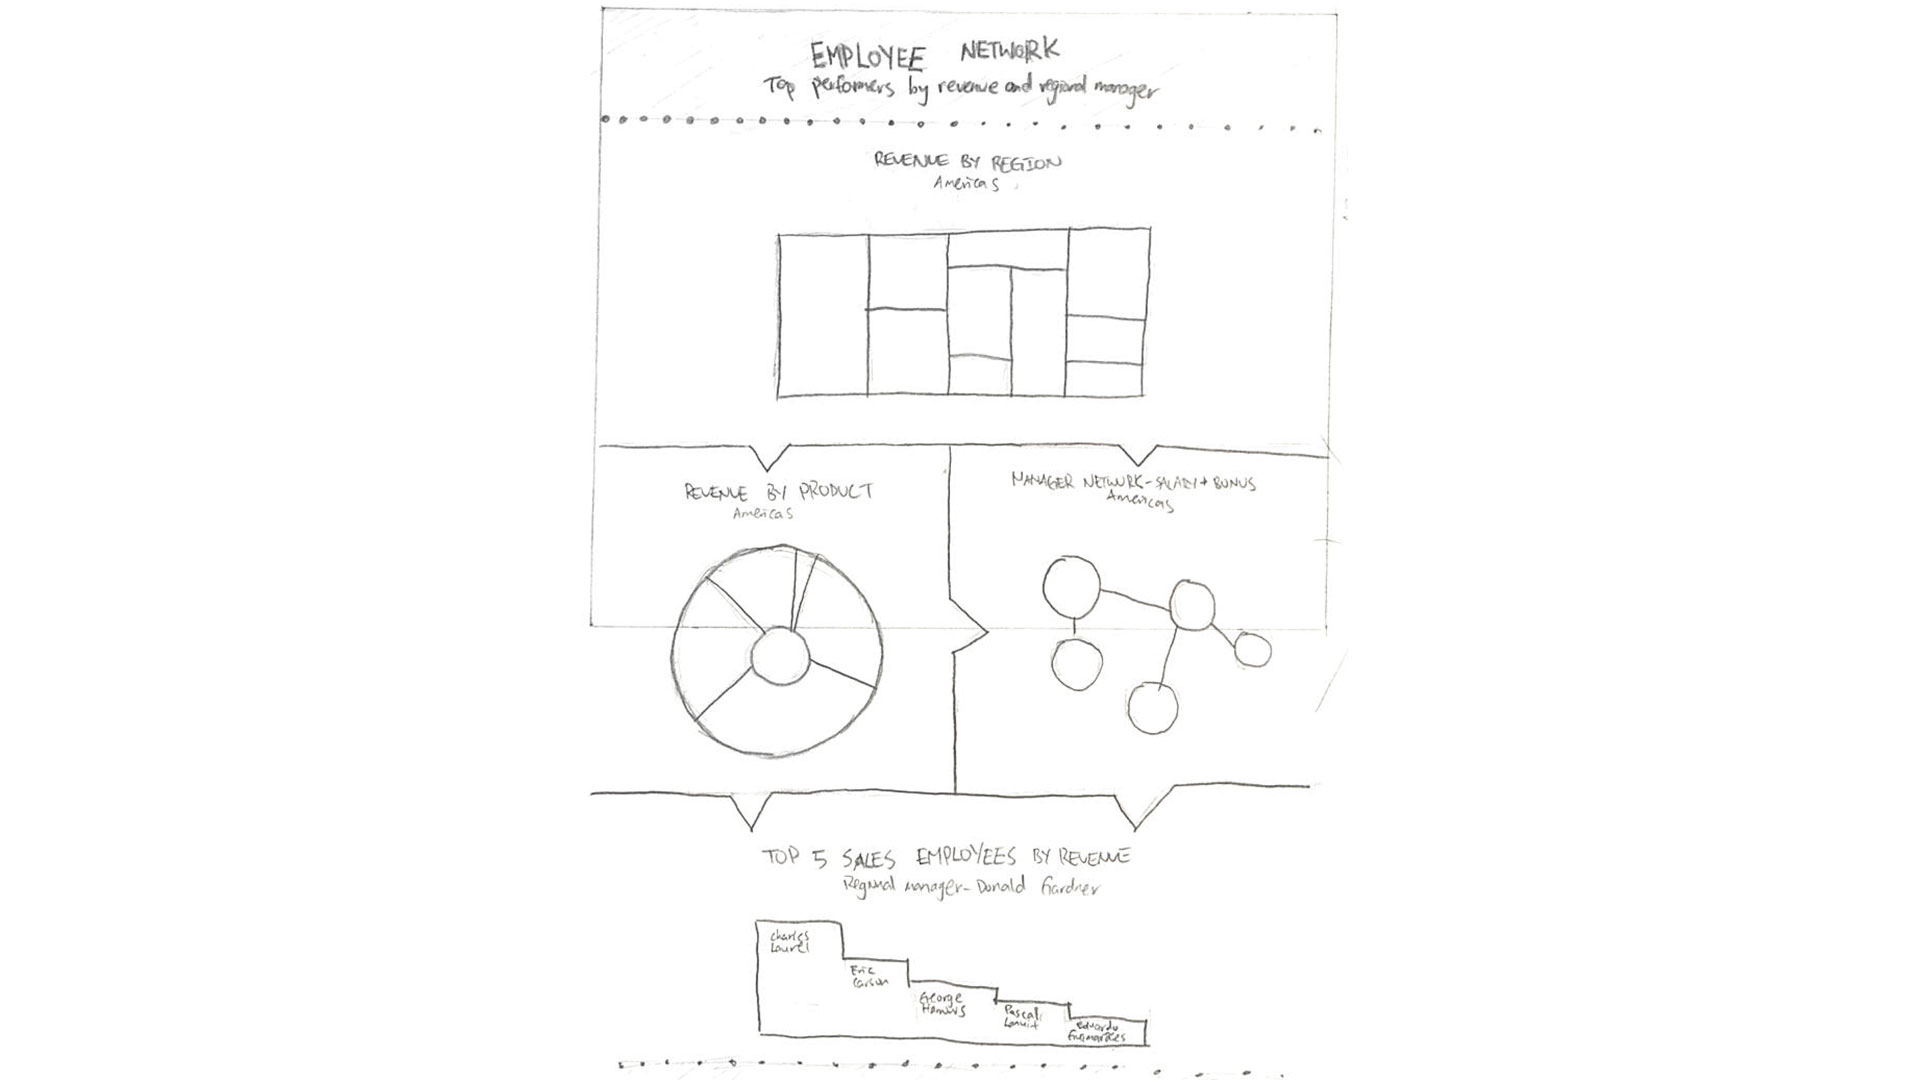 EMPLOYEE NETWORK
Top performers by revenue and regional manager
REVENUE BY REGION
Americas
REVENUE BY PRODUCT
Americas
MANAGER NETWORK-SALARY + BONUS
Americas
TOP 5 SALES EMPLOYEES BY REVENUE
Regional manager- Donald Gardner
Charles
Laurel
Eric
Carson
George
Pascal
Eduardo
Guimaraes